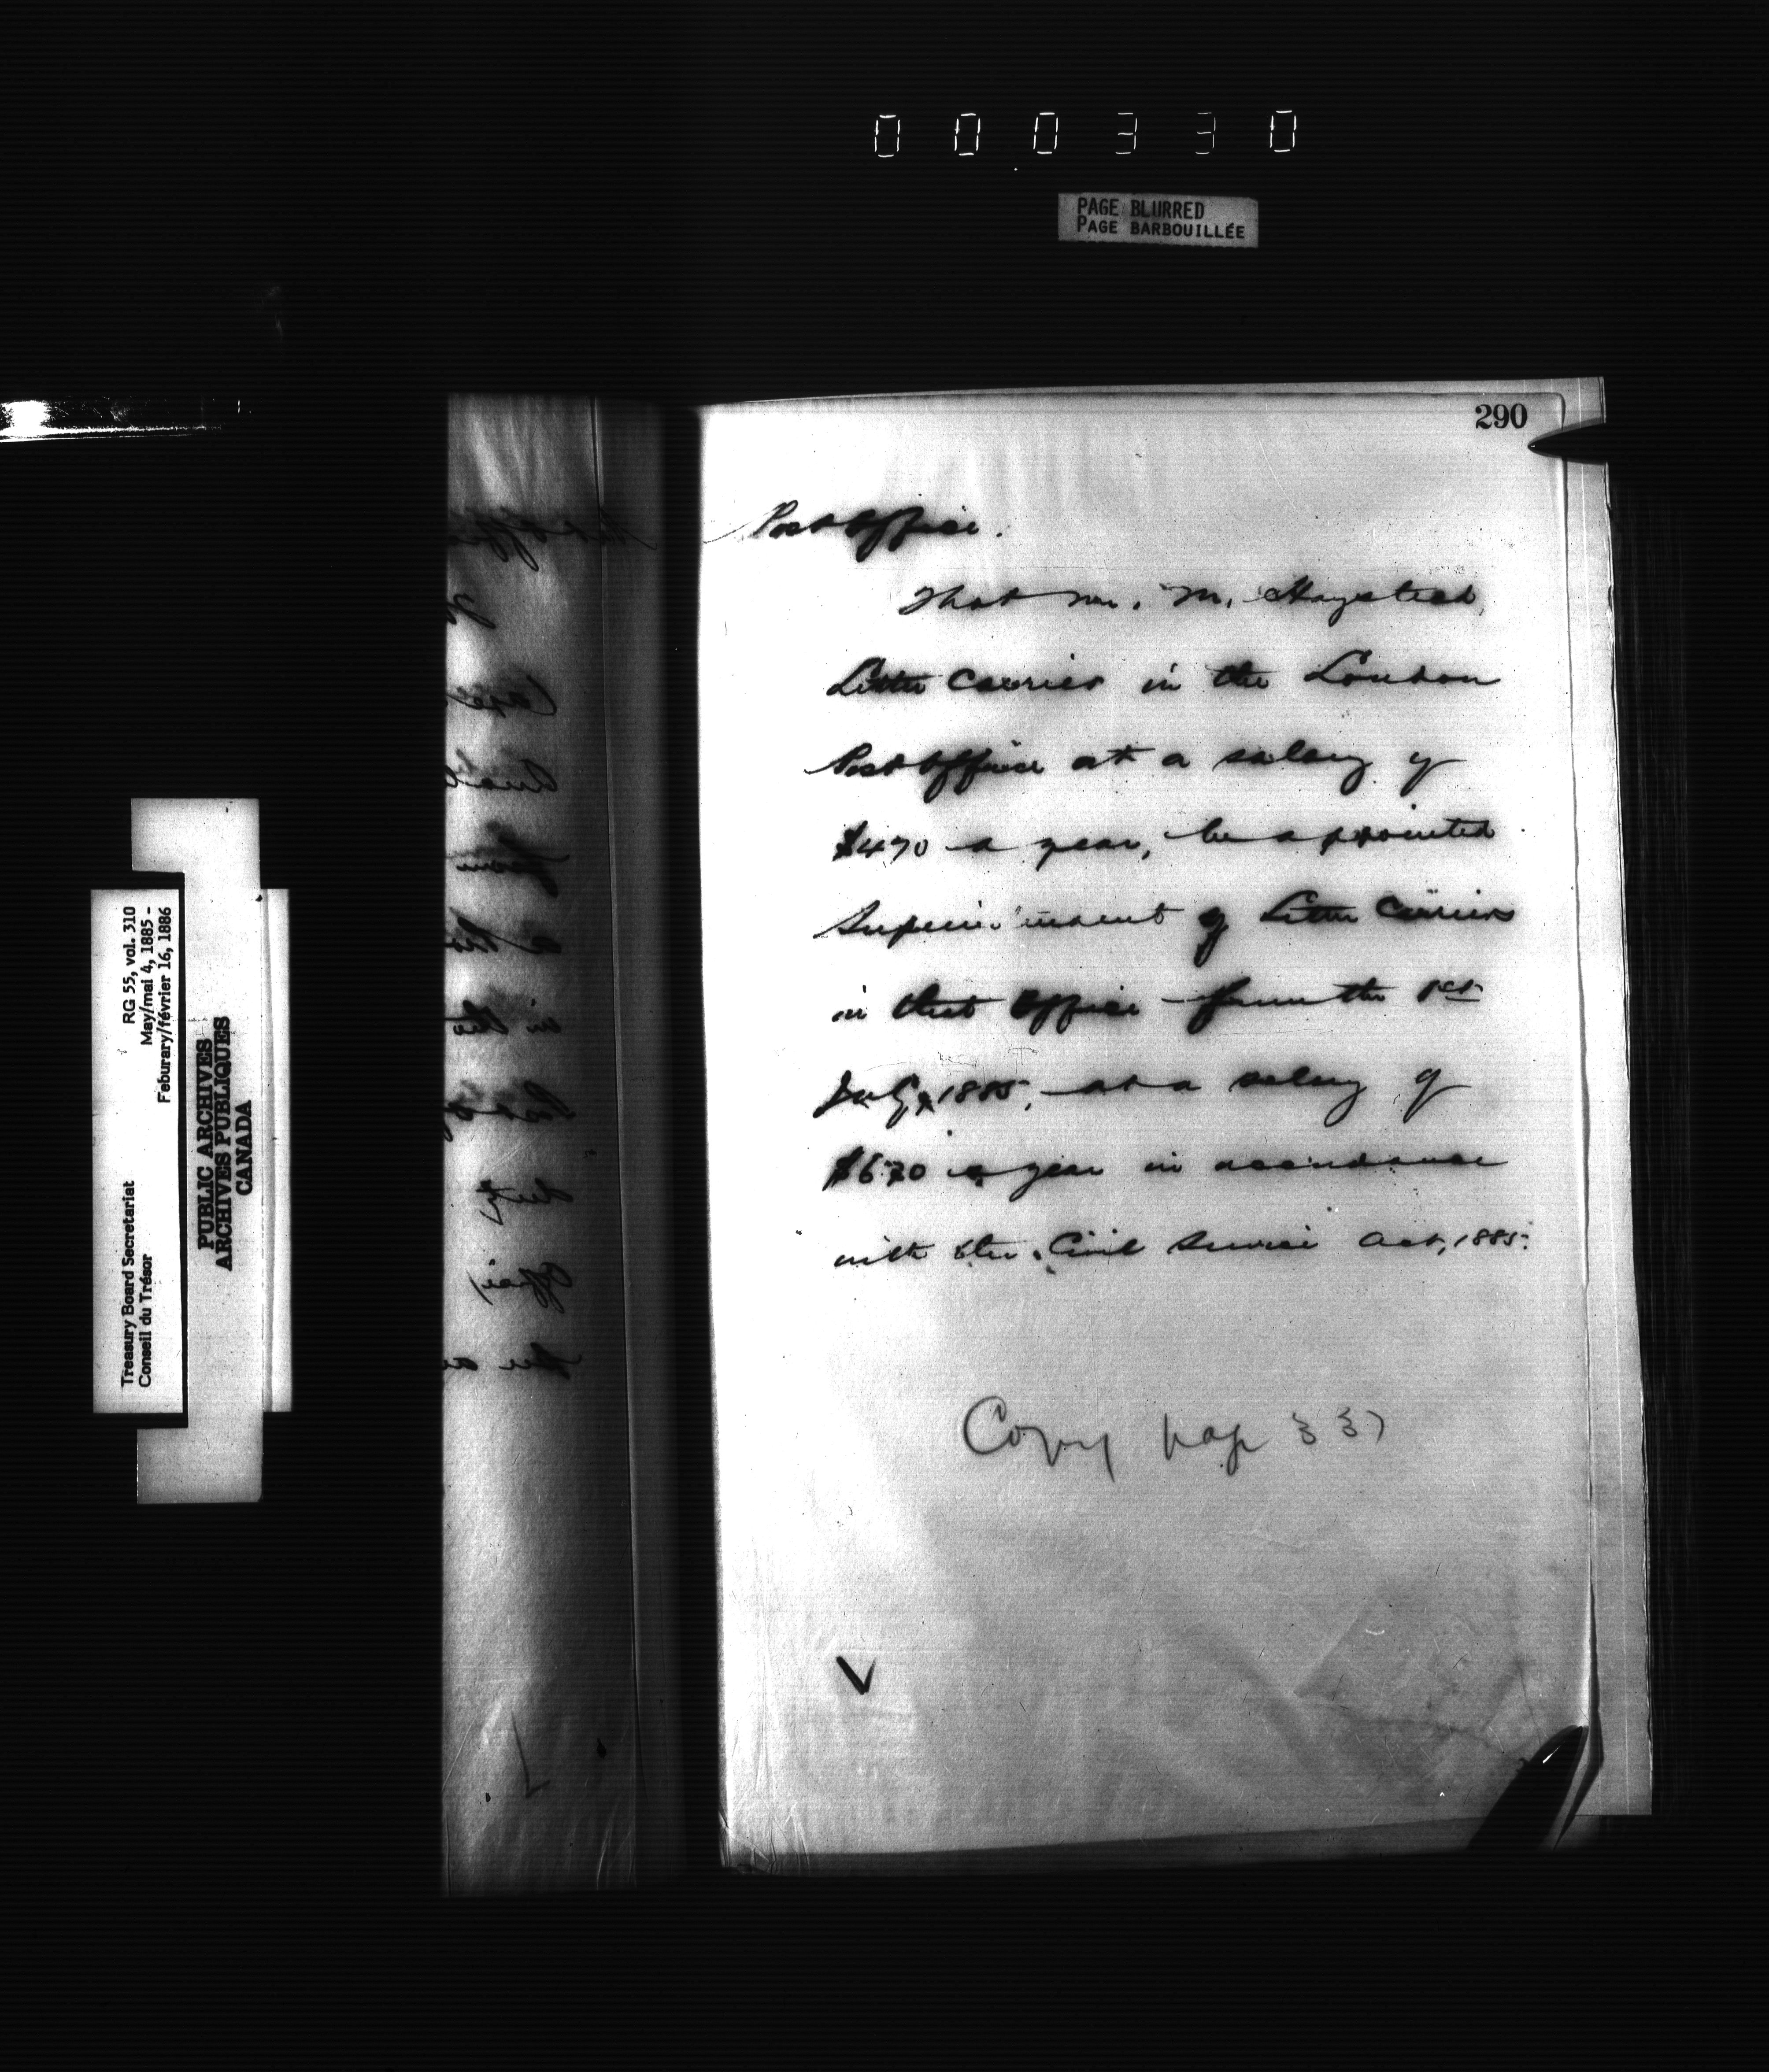 000330
PAGE BLURRED
PAGE BARBOUILLÉE
290
Post Office.
That Mr. M. Haystead,
Letter Carrier in the London
Post Office at a salary of
$470 a year, be appointed
Superintendent of Letter Carriers
in that Office from the 1st
July, 1885, at a salary of
$670 a year in accordance
with the Civil Service Act, 1885.
Copy page 337
V
Treasury Board Secretariat
Conseil du Trésor
RG 55, vol. 310
May/mai 4, 1885 -
Feburary/février 16, 1886
PUBLIC ARCHIVES
ARCHIVES PUBLIQUES
CANADA